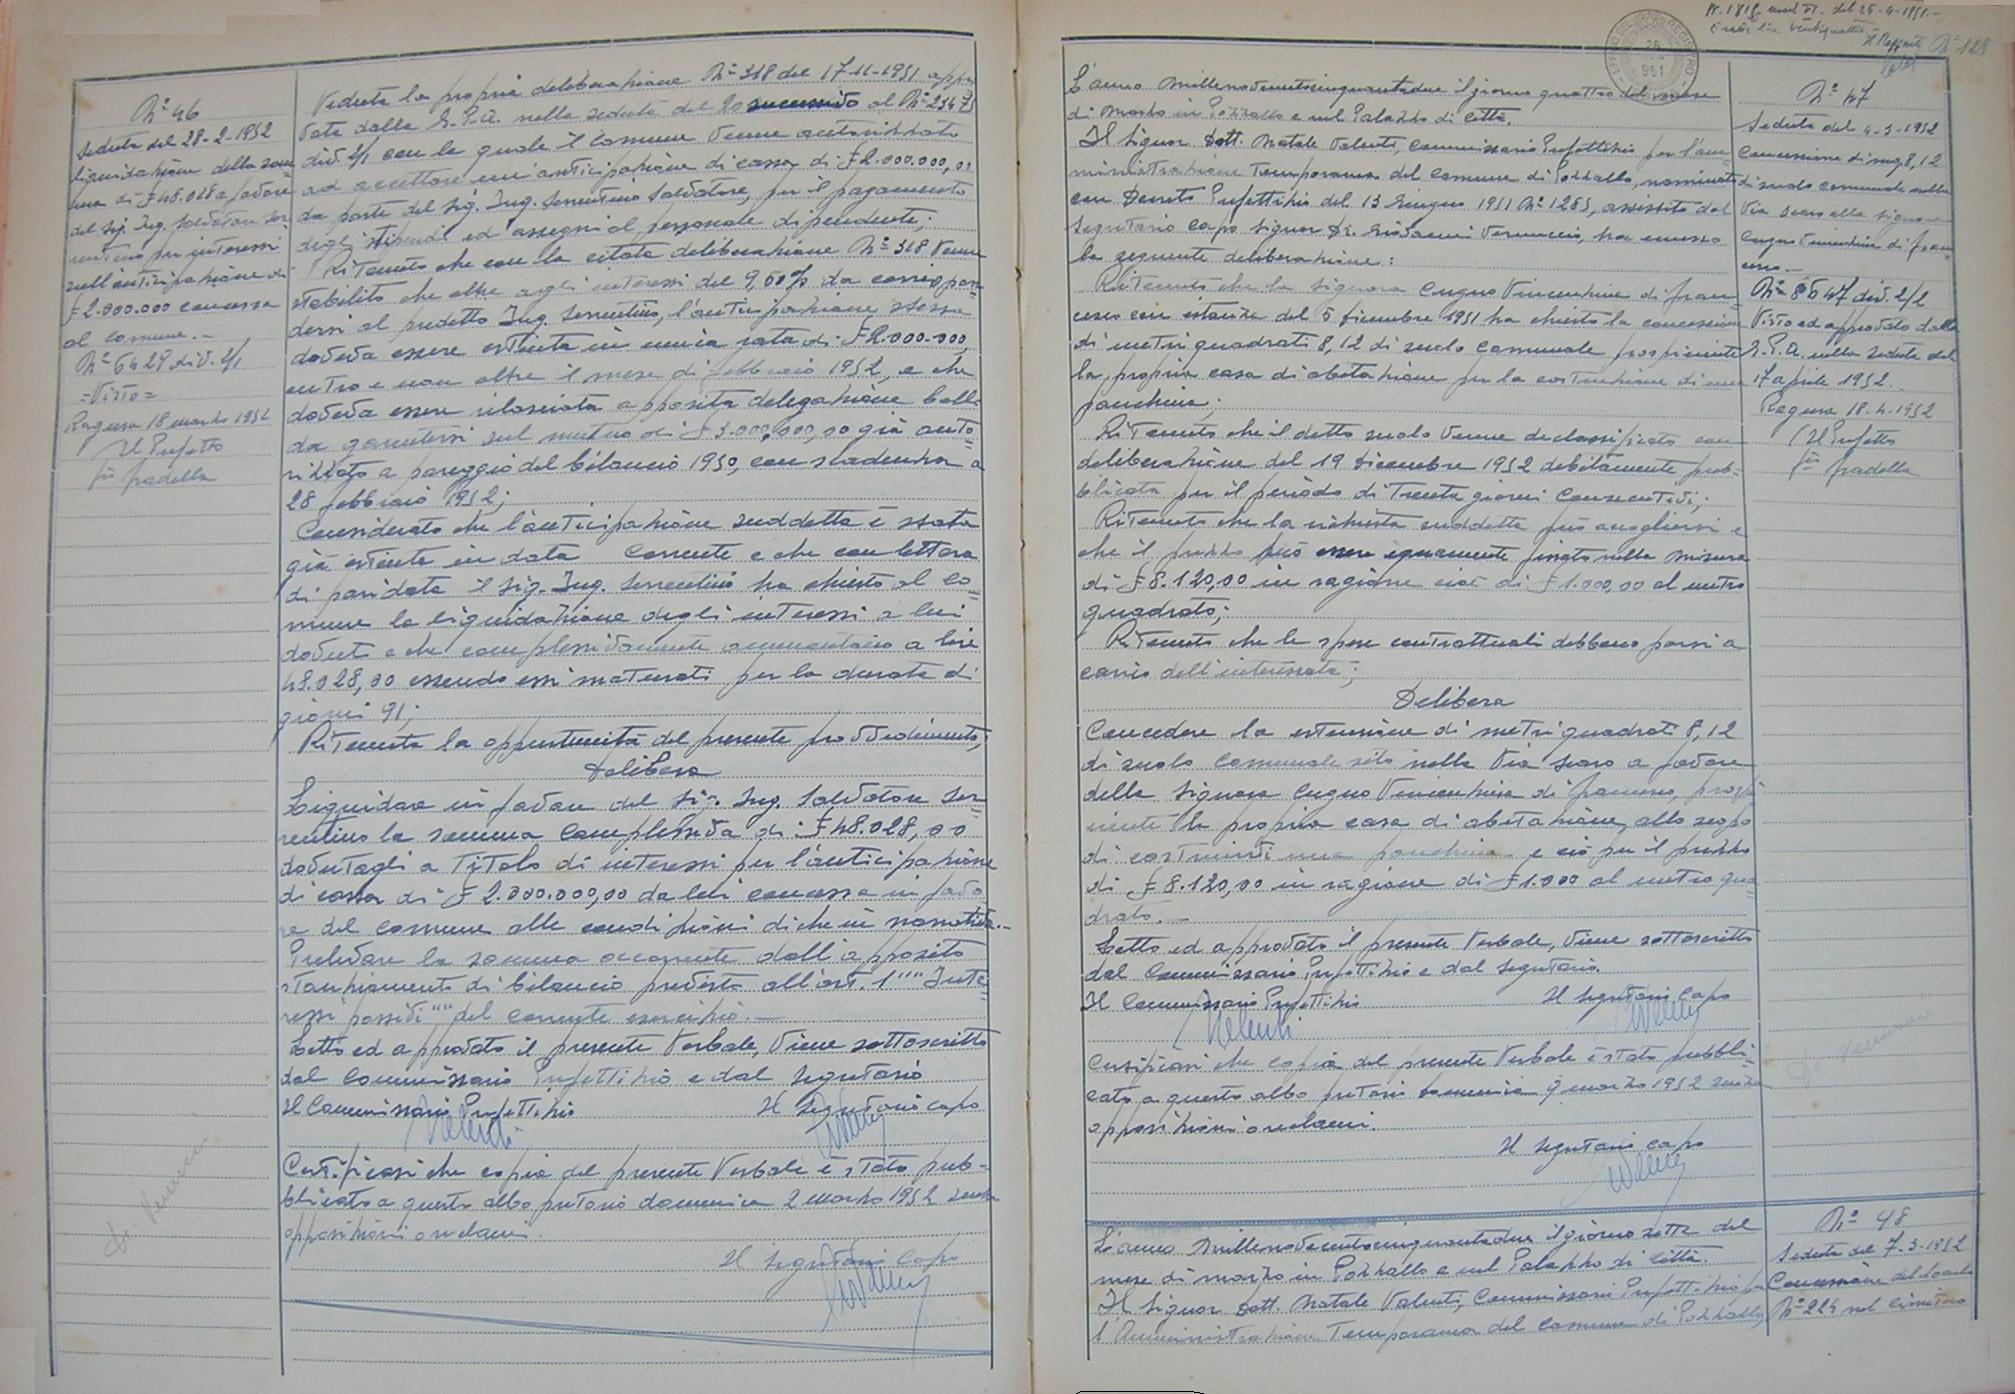 Nº 46
Seduta del 28-2-1952
Liquidazione della som
ma di £ 48.028 a favore
del Sig. Ing. Salvatore Sor
rentino per interessi
sull'anticipazione di
£ 2.000.000 concessa
al comune. -
Nº 6429 div. 2/1
= Visto =
Ragusa 18 marzo 1952
Il Prefetto
fto Pradella
Veduta la propria deliberazione Nº 318 del 17-11-1951 appro
vata dalla G.P.A. nella seduta del 20 successivo al Nº 23475
div. 2/1 con la quale il Comune venne autorizzato
ad accettare un'anticipazione di cassa di £ 2.000.000,00
da parte del Sig. Ing. Sorrentino Salvatore, per il pagamento
degli stipendi ed assegni al personale dipendente;
Ritenuto che con la citata deliberazione Nº 318 venne
stabilito che oltre agli interessi del 9,60% da corrispon
dersi al predetto Ing. Sorrentino, l'anticipazione stessa
doveva essere estinta in unica rata di £ 2.000.000,
entro e non oltre il mese di febbraio 1952, e che
doveva essere rilasciata apposita delegazione
da garantersi sul mutuo di £ 3.000.000,00 già auto-
rizzato a pareggio del bilancio 1950, con scadenza a
28 febbraio 1952;
Considerato che l'anticipazione suddetta è stata
già estinta in data corrente e che con lettera
di pari data il Sig. Ing. Sorrentino ha chiesto al Co-
mune la liquidazione degli interessi a lui
dovuti e che complessivamente ammontano a lire
48.028,00 essendo essi maturati per la durata di
giorni 91;
Ritenuta la opportunità del presente provvedimento;
Delibera
Liquidare in favore del Sig. Ing. Salvatore Sor-
rentino la somma complessiva di £ 48.028,00
dovutagli a titolo di interessi per l'anticipazione
di cassa di £ 2.000.000,00 da lui concessa in favo
re del comune alle condizioni di che in narrativa.-
Prelevare la somma occorrente dall'apposito
stanziamento di bilancio previsto all'art. 1 "" Inte-
ressi passivi "" del corrente esercizio. -
Letto ed approvato il presente Verbale, viene sottoscritto
dal Commissario Prefettizio e dal Segretario
Il Commissario Prefettizio Il Segretario Capo
Valenti
Certificasi che copia del presente Verbale è stato pub-
blicato a questo albo pretorio domenica 2 marzo 1952 senza
opposizioni o reclami.
Il Segretario Capo
Nº 128
L'anno millenovecentocinquantadue il giorno quattro del mese
di Marzo in Pozzallo e nel Palazzo di Città.
Il Signor Dott. Natale Valenti, Commissario Prefettizio per l'am-
ministrazione Temporanea del Comune di Pozzallo, nominato
con Decreto Prefettizio del 13 Giugno 1951 Nº 1283, assistito dal
Segretario Capo Signor Dr. Giovanni Vernuccio, ha emesso
la seguente deliberazione:
Ritenuto che la Signora Cugno Vincenzina di Fran-
cesco con istanza del 5 dicembre 1951 ha chiesto la concessione
di metri quadrati 8,12 di suolo comunale prospiciente
la propria casa di abitazione per la costruzione di una
panchina;
Ritenuto che il detto suolo venne declassificato con
deliberazione del 19 Dicembre 1952 debitamente pub-
blicata per il periodo di Trenta giorni consecutivi;
Ritenuto che la richiesta suddetta può accogliersi e
che il prezzo può essere equamente fissato nella misura
di £ 8.120,00 in ragione cioè di £ 1.000,00 al metro
quadrato;
Ritenuto che le spese contrattuali debbono porsi a
carico dell'interessata;
Delibera
Concedere la estensione di metri quadrati 8,12
di suolo comunale sito nella Via Scaro a favore
della Signora Cugno Vincenzina di Francesco, prospi
ciente la propria casa di abitazione, allo scopo
di costruirvi una panchina e ciò per il prezzo
di £ 8.120,00 in ragione di £ 1.000 al metro qua-
drato. -
Letto ed approvato il presente Verbale, viene sottoscritto
dal Commissario Prefettizio e dal Segretario.
Il Commissario Prefettizio Il Segretario Capo
Valenti
Certificasi che copia del presente Verbale è stato pubbli-
cato a questo albo pretorio domenica 9 marzo 1952 senza
opposizioni o reclami.
Il Segretario Capo
L'anno millenovecentocinquantadue il giorno sette del
mese di marzo in Pozzallo e nel Palazzo di Città.
Il Signor Dott. Natale Valenti, Commissario Prefettizio per
l'Amministrazione Temporanea del Comune di Pozzallo,
Nº 47
Seduta del 4-3-1952
Concessione di mq. 8,12
di suolo comunale nella
Via Scaro alla Signora
Cugno Vincenzina di Fran-
cesco. -
Nº 8547 div. 2/2
Visto ed approvato dalla
G.P.A. nella seduta del
17 aprile 1952.
Ragusa 18-4-1952
Il Prefetto
fto Pradella
Nº 48
Seduta del 7-3-1952
Concessione del loculo
Nº 224 nel Cimitero